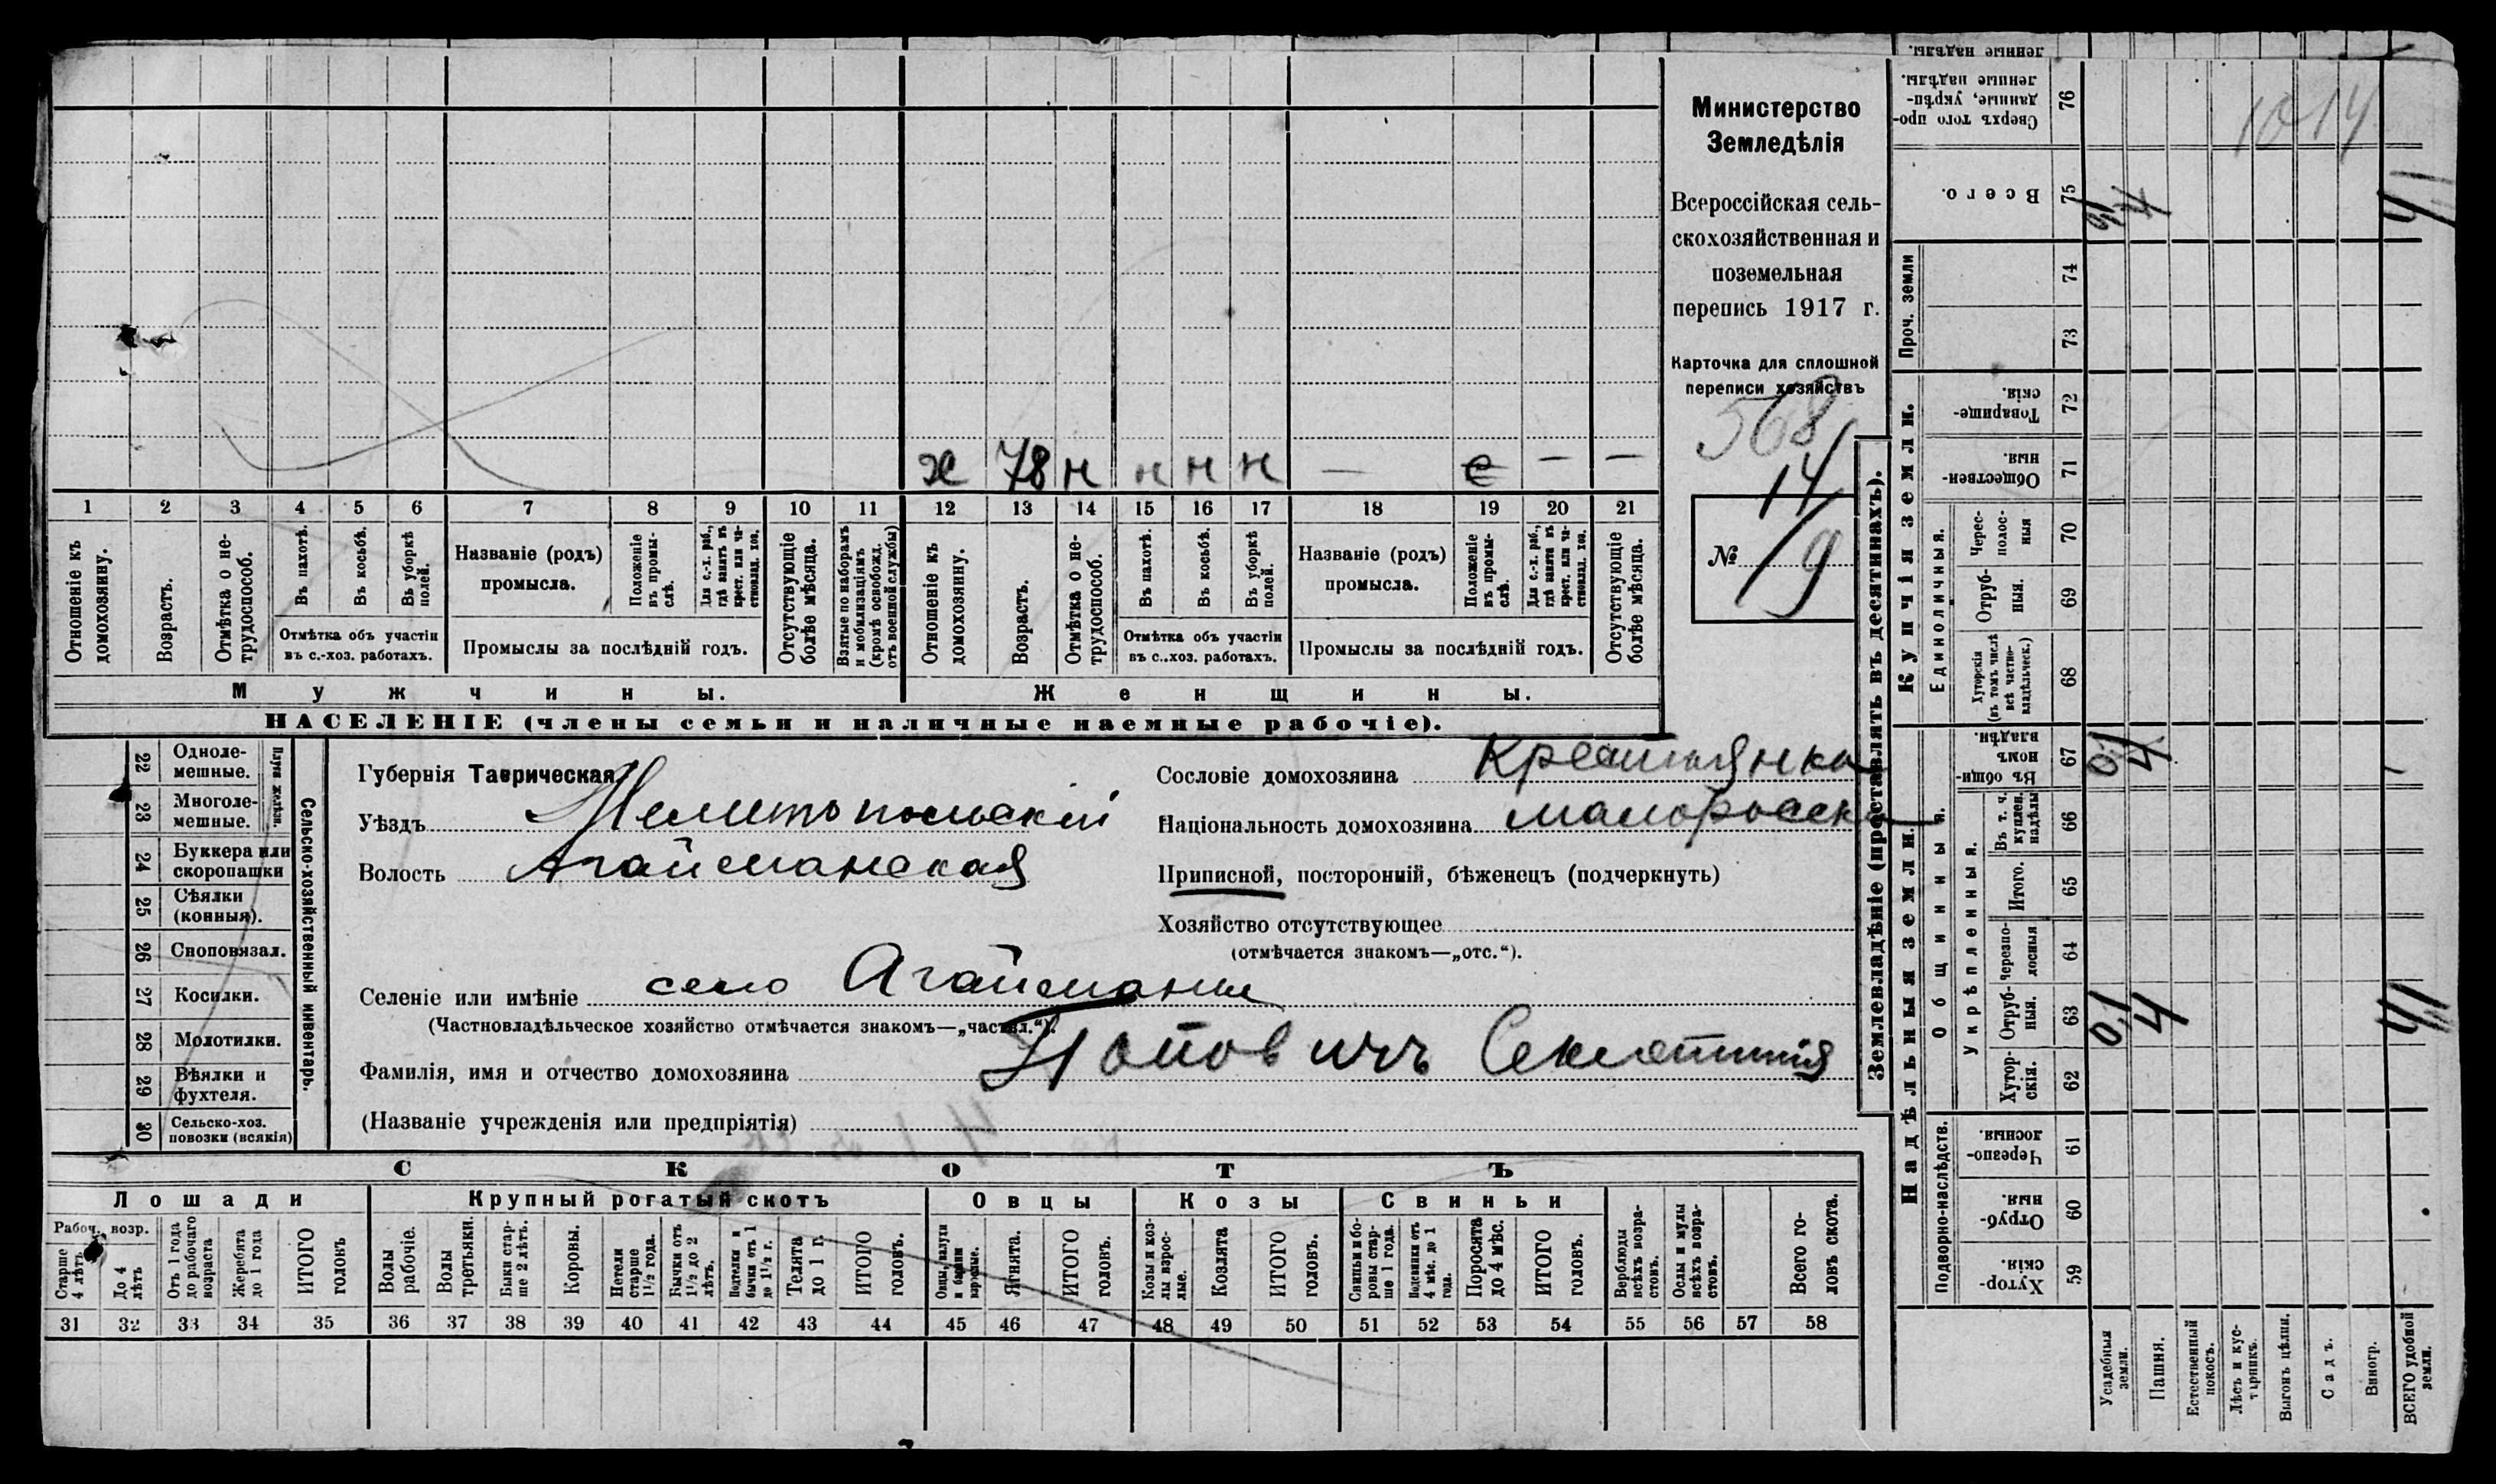 х 78 н н н н — е — —
1 2 3 4 5 6 7 8 9 10 11 12 13 14 15 16 17 18 19 20 21
Отношеніе къ домохозяину.
Возрастъ.
Отмѣтка о не-трудоспособ.
Въ пахотѣ.
Въ косьбѣ.
Въ уборкѣ полей.
Отмѣтка объ участіи въ с.-хоз. работахъ.
Названіе (родъ) промысла.
Положеніе въ промы-слѣ.
Для с.-х. раб., гдѣ занятъ въ крест. или ча-стновлад. хоз.
Промыслы за послѣдній годъ.
Отсутствующіе болѣе мѣсяца.
Взятые по наборамъ и мобилизаціямъ (кромѣ освобожд. отъ военной службы)
Отношеніе къ домохозяину.
Возрастъ.
Отмѣтка о не-трудоспособ.
Въ пахотѣ.
Въ косьбѣ.
Въ уборкѣ полей.
Отмѣтка объ участіи въ с..хоз. работахъ.
Названіе (родъ) промысла.
Положеніе въ промы-слѣ.
Для с.-х. раб., гдѣ занята въ крест. или ча-стновлад. хоз.
Промыслы за послѣдній годъ.
Отсутствующіе болѣе мѣсяца.
Мужчины.
Женщины.
НАСЕЛЕНІЕ (члены семьи и наличные наемные рабочіе).
Министерство
Земледѣлія
Всероссійская сель-
скохозяйственная и
поземельная
перепись 1917 г.
Карточка для сплошной
переписи хозяйствъ
568
14
№ 19
22 Одноле-мешные.
23 Многоле-мешные.
Плуги желѣзн.
24 Буккера или скоропашки
25 Сѣялки (конныя).
26 Сноповязал.
27 Косилки.
28 Молотилки.
29 Вѣялки и фухтеля.
30 Сельско-хоз. повозки (всякія)
Сельско-хозяйственный инвентарь.
Губернія Таврическая
Уѣздъ Мелитопольскій
Волость Агайманская
Селеніе или имѣніе село Агайманы
(Частновладѣльческое хозяйство отмѣчается знакомъ—„частвл.“).
Фамилія, имя и отчество домохозяина Поповичъ Секлетинія
(Названіе учрежденія или предпріятія)
Сословіе домохозяина Крестьянка
Національность домохозяина малоросск
Приписной, посторонній, бѣженецъ (подчеркнуть)
Хозяйство отсутствующее
(отмѣчается знакомъ—„отс.“).
СКОТЪ
Лошади
Крупный рогатый скотъ
Овцы
Козы
Свиньи
Рабоч. возр.
Старше 4 лѣтъ
До 4 лѣтъ
Отъ 1 года до рабочаго возраста
Жеребята до 1 года
ИТОГО головъ
Волы рабочіе.
Волы третьяки.
Быки стар-ше 2 лѣтъ.
Коровы.
Нетели старше 1½ года.
Бычки отъ 1½ до 2 лѣтъ.
Подтелки и бычки отъ 1 до 1½ г.
Телята до 1 г.
ИТОГО головъ.
Овцы, валухи и бараны взрослые.
Ягнята.
ИТОГО головъ.
Козы и коз-лы взрос-лые.
Козлята
ИТОГО головъ.
Свиньи и бо-ровы стар-ше 1 года.
Подсвинки отъ 4 мѣс. до 1 года.
Поросята до 4 мѣс.
ИТОГО головъ.
Верблюды всѣхъ возра-стовъ.
Ослы и мулы всѣхъ возра-стовъ.
Всего го-ловъ скота.
31 32 33 34 35 36 37 38 39 40 41 42 43 44 45 46 47 48 49 50 51 52 53 54 55 56 57 58
Землевладѣніе (проставлять въ десятинахъ).
Надѣльныя земли.
Купчія земли.
Проч. земли
Подворно-наслѣдств.
Общинныя.
Укрѣпленныя.
Единоличныя.
ленные надѣлы.
76 Сверхъ того про-данные, укрѣп-ленные надѣлы.
75 Всего.
74
73
72 Товарище-скія.
71 Обществен-ныя.
70 Черес-полос-ныя
69 Отруб-ныя.
68 Хуторскія (въ томъ числѣ всѣ частно-владѣльческ.)
67 Въ общи-номъ владѣн.
66 Въ т. ч. куплен. надѣлы
65 Итого.
64 Черезпо-лосныя
63 Отруб-ныя.
62 Хутор-скія.
61 Черезпо-лосныя.
60 Отруб-ныя.
59 Хутор-скія.
Усадебныя земли.
Пашня.
Естественный покосъ.
Лѣсъ и кус-тарникъ.
Выгонъ цѣлин.
Садъ.
Виногр.
ВСЕГО удобной земли.
1014
0,1 4
0,1 4